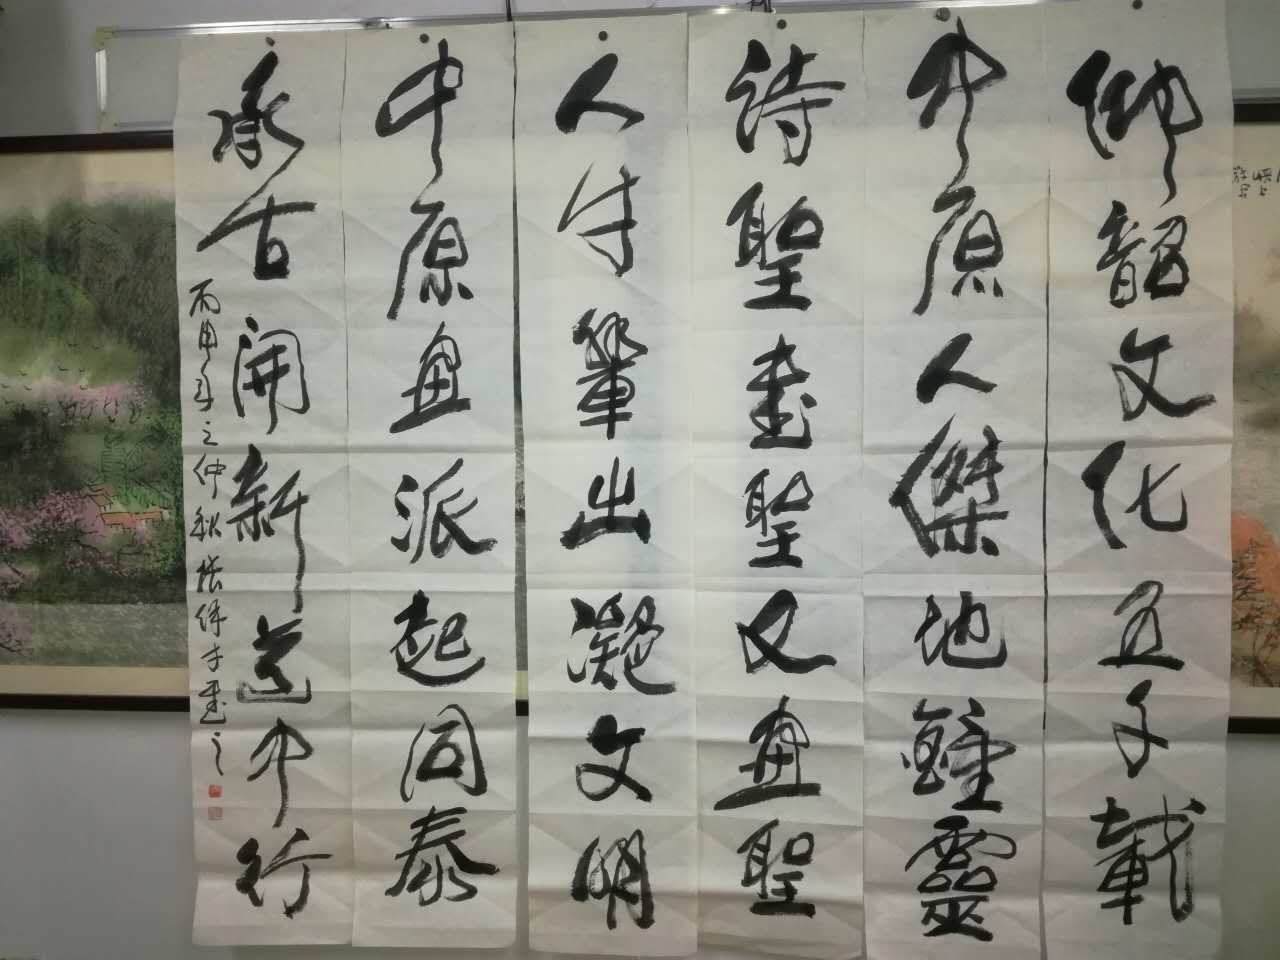 仰韶文化五千載
中原人傑地鍾靈
詩聖書聖又畫聖
人才輩出凝文明
中原畫派起同泰
承古開新道中行
丙申年之仲秋張偉才書之